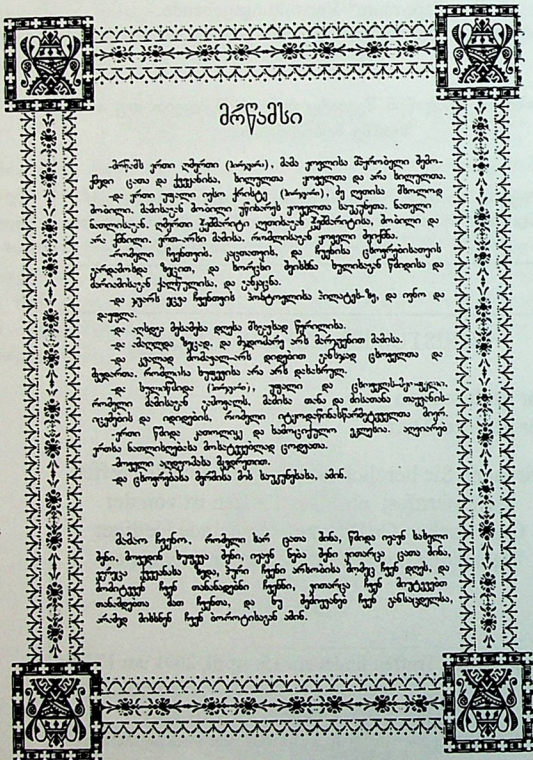 მრწამსი
-მრწამს ერთი ღმერთი (პირჯვარი), მამა ყოვლისა მპყრობელი შემო-
ქმედი ცათა და ქვეყანისა, ხილულთა ყოველთა და არა ხილულთა.
-და ერთი უფალი იესო ქრისტე (პირჯვარი), ძე ღვთისა მხოლოდ
შობილი, მამისაგან შობილი უწინარეს ყოველთა საუკუნეთა. ნათელი
ნათლისაგან, ღმერთი ჭეშმარიტი ღვთისაგან ჭეშმარიტისა, შობილი და
არა ქმნილი. ერთ-არსი მამისა, რომლისაგან ყოველი შეიქმნა.
-რომელი ჩვენთვის, კაცთათვის, და ჩვენისა ცხოვრებისათვის
გარდამოხდა ზეცით, და ხორცნი შეისხნა სულისაგან წმიდისა და
მარიამისაგან ქალწულისა, და განკაცნა.
-და ჯვარს ეცვა ჩვენთვის პონტოელისა პილატეს-ზე, და ივნო და
დაეფლა.
-და აღსდგა მესამესა დღესა მსგავსად წერილისა.
-და ამაღლდა ზეცად, და მჯდომარე არს მარჯვენით მამისა.
-და კვალად მომავალ-არს დიდებით განსჯად ცხოველთა და
მკვდართა, რომლისა სუფევისა არა არს დასასრულ.
-და სულიწმიდა (პირჯვარი), უფალი და ცხოველს-მყოფელი,
რომელი მამისაგან გამოვალს, მამისა თანა და ძისათანა თაყვანის-
იცემების და იდიდების, რომელი იტყოდა წინასწარმეტყველთა მიერ.
-ერთი წმიდა კათოლიკე და სამოციქულო ეკლესია. აღვიარებ
ერთსა ნათლისღებასა მოსატევებლად ცოდვათა.
-მოველი აღდგომასა მკვდრეთით.
-და ცხოვრებასა მერმისა მის საუკუნესასა, ამინ.
მამაო ჩვენო, რომელი ხარ ცათა შინა, წმიდა იყავნ სახელი
შენი, მოვედინ სუფევა შენი, იყავნ ნება შენი ვითარცა ცათა შინა,
ეგრეცა ქვეყანასა ზედა, პური ჩვენი არსობისა მომეც ჩვენ დღეს, და
მომიტევენ ჩვენ თანანადებნი ჩვენნი, ვითარცა ჩვენ მიუტევებთ
თანამდებთა მათ ჩვენთა, და ნუ შემიყვანებ ჩვენ განსაცდელსა,
არამედ მიხსნენ ჩვენ ბოროტისაგან ამინ.